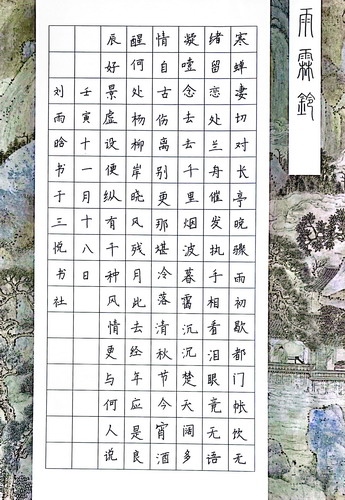 雨霖鈴
寒蝉凄切对长亭晚骤雨初歇都门帐饮无
绪留恋处兰舟催发执手相看泪眼竟无语
凝噎念去去千里烟波暮霭沉沉楚天阔多
情自古伤离别更那堪冷落清秋节今宵酒
醒何处杨柳岸晓风残月此去经年应是良
辰好景虚设便纵有千种风情更与何人说
壬寅十一月十八日
刘雨晗书于三悦书社